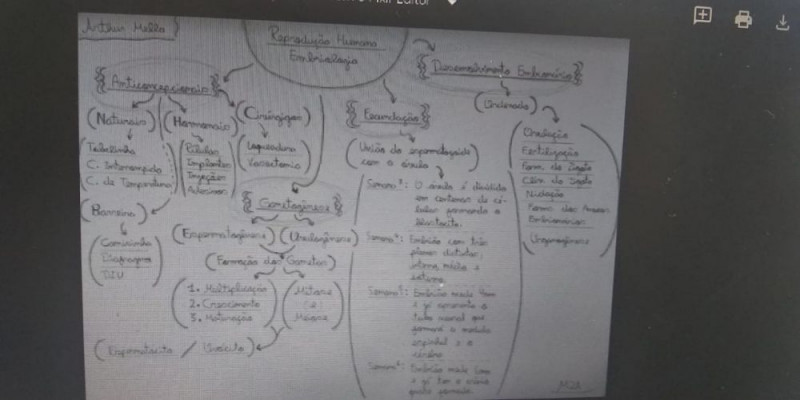 Arthur Mello
Reprodução Humana
Embriologia
Anticoncepcionais
(Naturais)
Tabelinha
C. Interrompido
C. de Temperatura
(Hormonais)
Pílulas
Implantes
Injeções
Adesivos
(Cirúrgicos)
Laqueadura
Vasectomia
(Barreira)
Camisinha
Diafragma
DIU
Gametogênese
(Espermatogênese) (Ovulogênese)
(Formação dos Gametas)
1. Multiplicação
2. Crescimento
3. Maturação
Mitose
e
Meiose
(Espermatócito / Ovócito)
Fecundação
(União do espermatozoide
com o óvulo)
Semana
O óvulo é dividido
em centenas de cé-
lulas formando o
blastocito.
Semana
Embrião com três
placas distintas:
interna, média e
externa
Semana
Embrião mede
e já apresenta o
tubo neural que
formará a medula
espinhal e o
cérebro
Semana
Embrião mede
e já tem o
formado.
Desenvolvimento Embrionário
(Ordenado)
Ovulação
Fertilização
Form. do Zigoto
Cliv. do Zigoto
Nidação
Forma dos Anexos
Embrionários
Organogênese